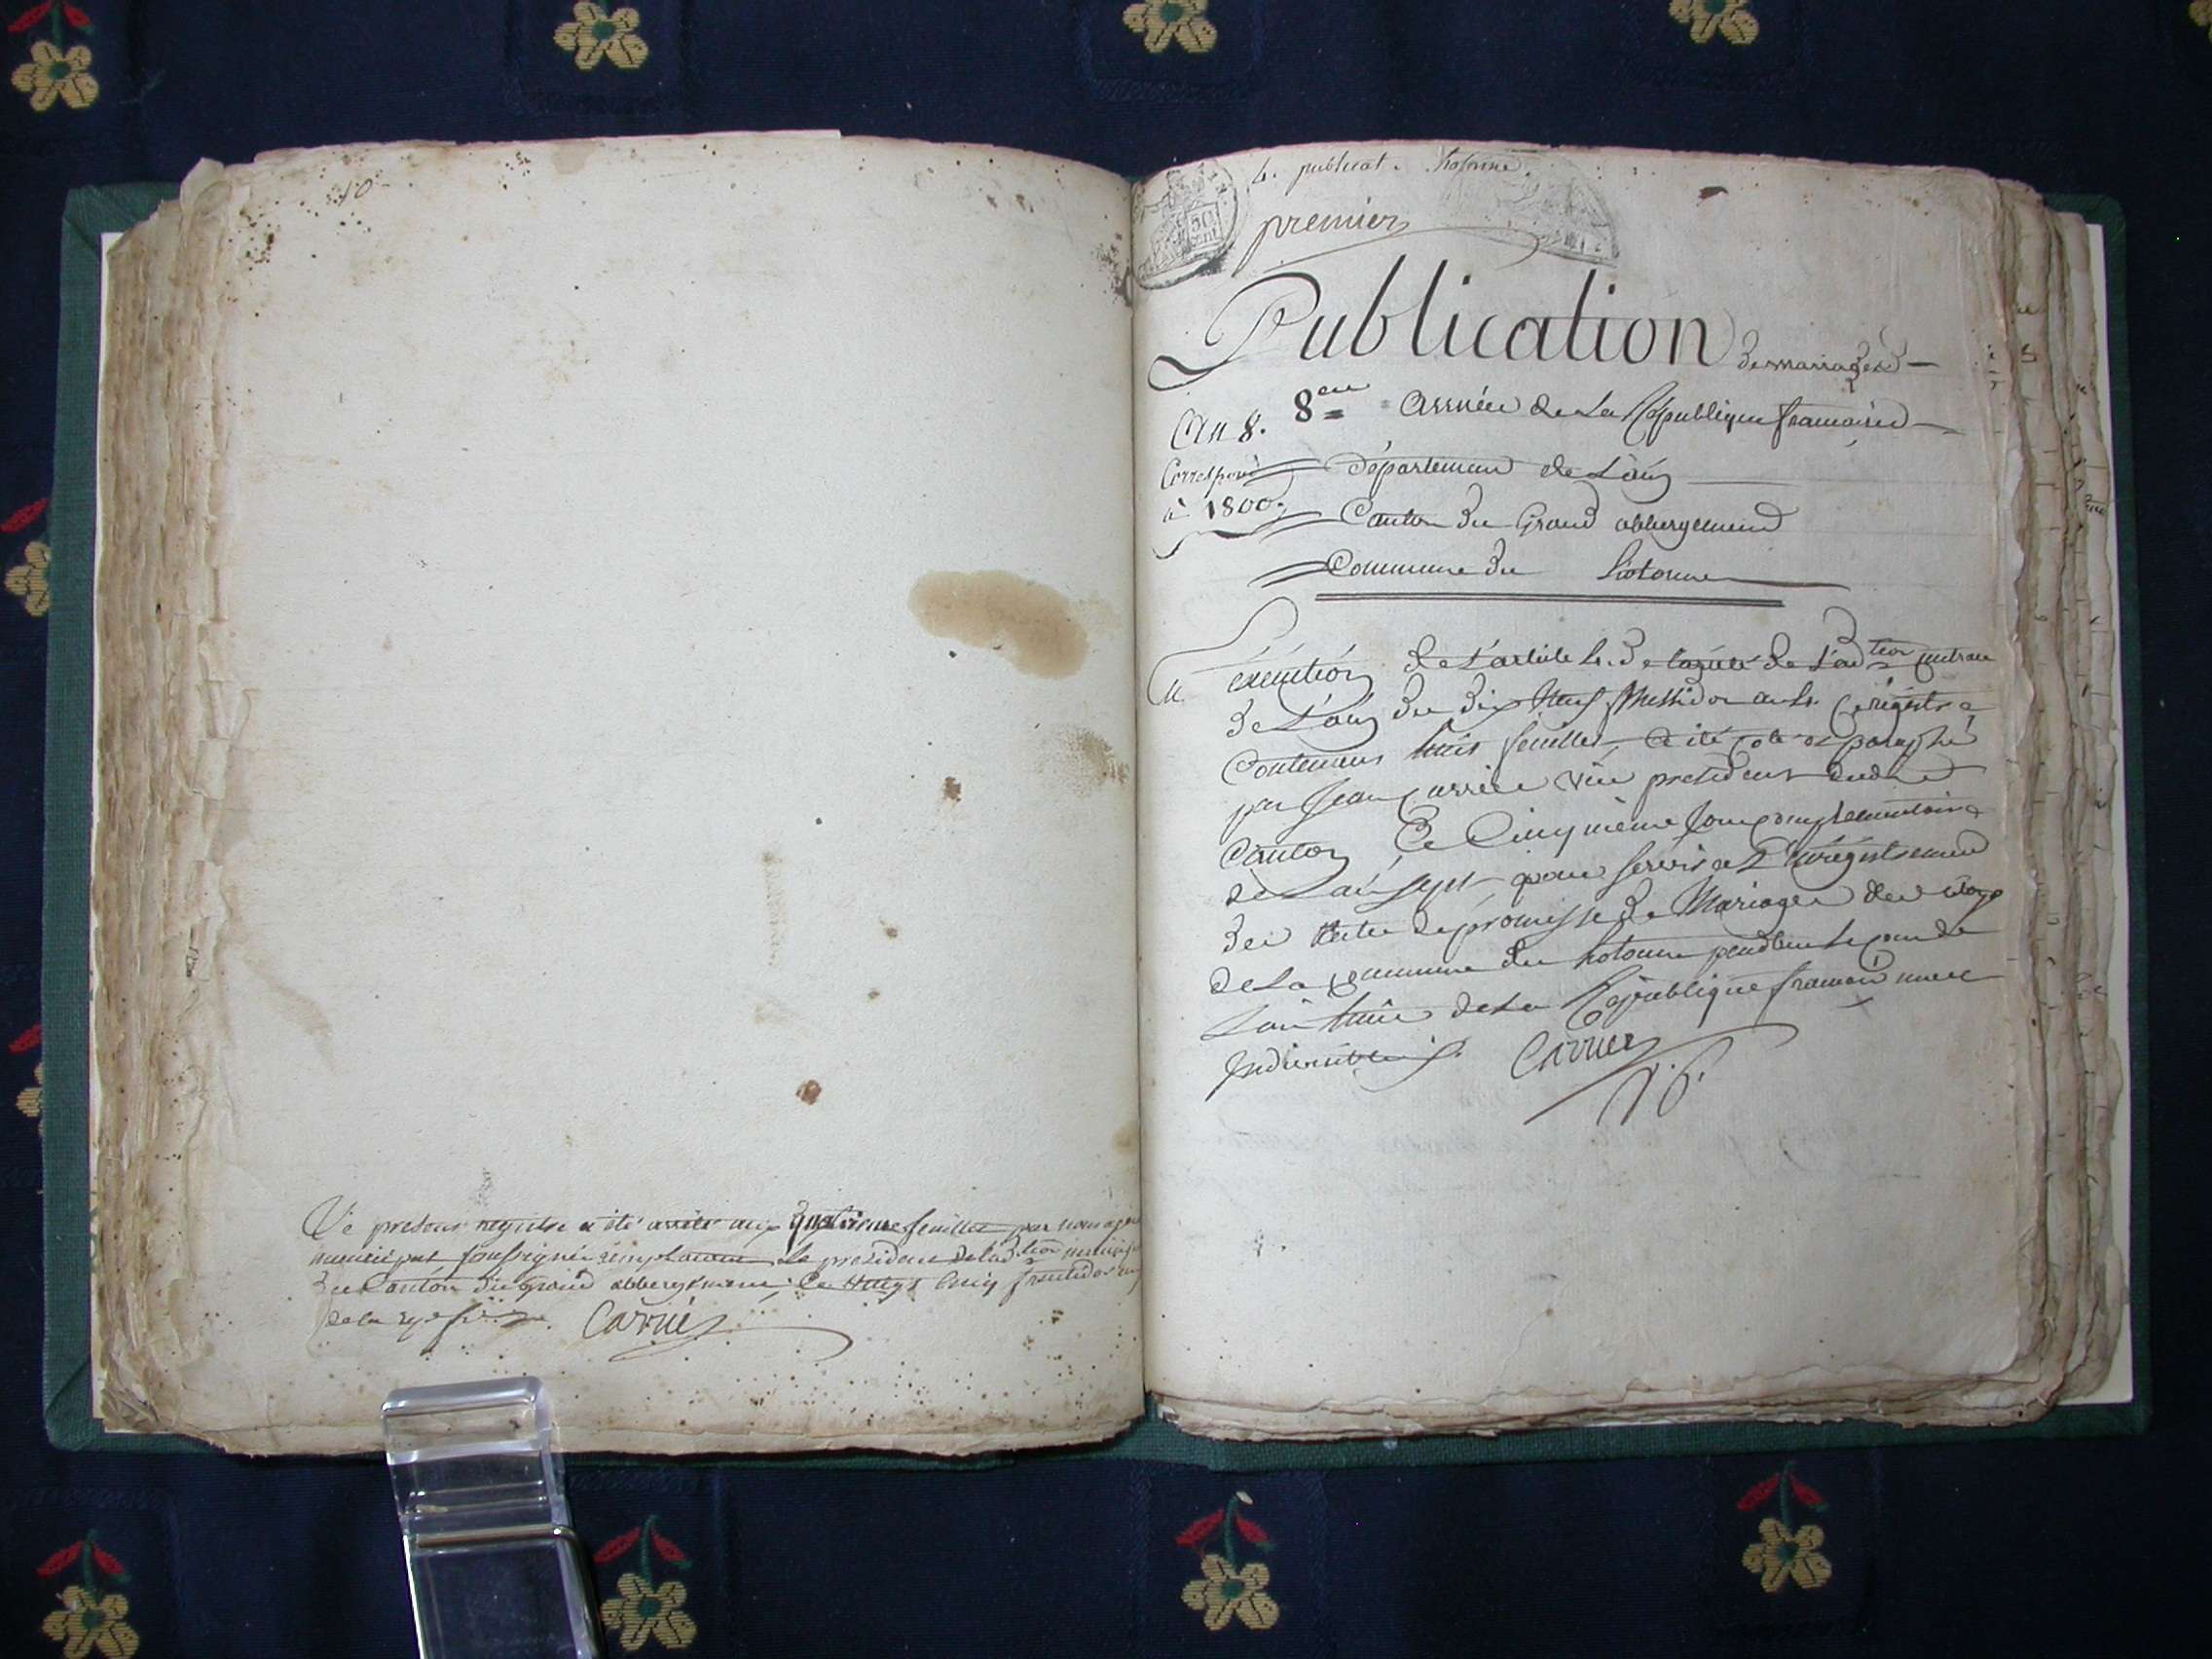 10
Ce present registre a été arrêté aux quatrieme feuillet par nous agent
municipal soussigné remplacant le president de lad.tion municip
du Canton du grand abbergement, Le vingt cinq fructidor an
de la rep. Carrier
4. publicat. hotonne.
50
cent
premier
Publication de mariages
An 8. 8eme Année de La République francaise
Correspond Département de L'ain
à 1800. Canton du Grand abbergement
Commune du hotonne
En execution de L'article 4. de l'arrêté de L'ad.tion centrale
de L'ain du dix Neuf Messidor an 4. Ce régistre
Contenant huit feuillets, a été coté et paraphé
par Jean Carrier vice president dudit
Canton Ce Cinquième Jour complementaire
de L'an sept, pour servir a L'enrégistrement
des actes de promesse de Mariages des
de La commune du hotonne pendant le cour de
L'an huit de La République francaise une et
Indivisible. Carrier
v. p.